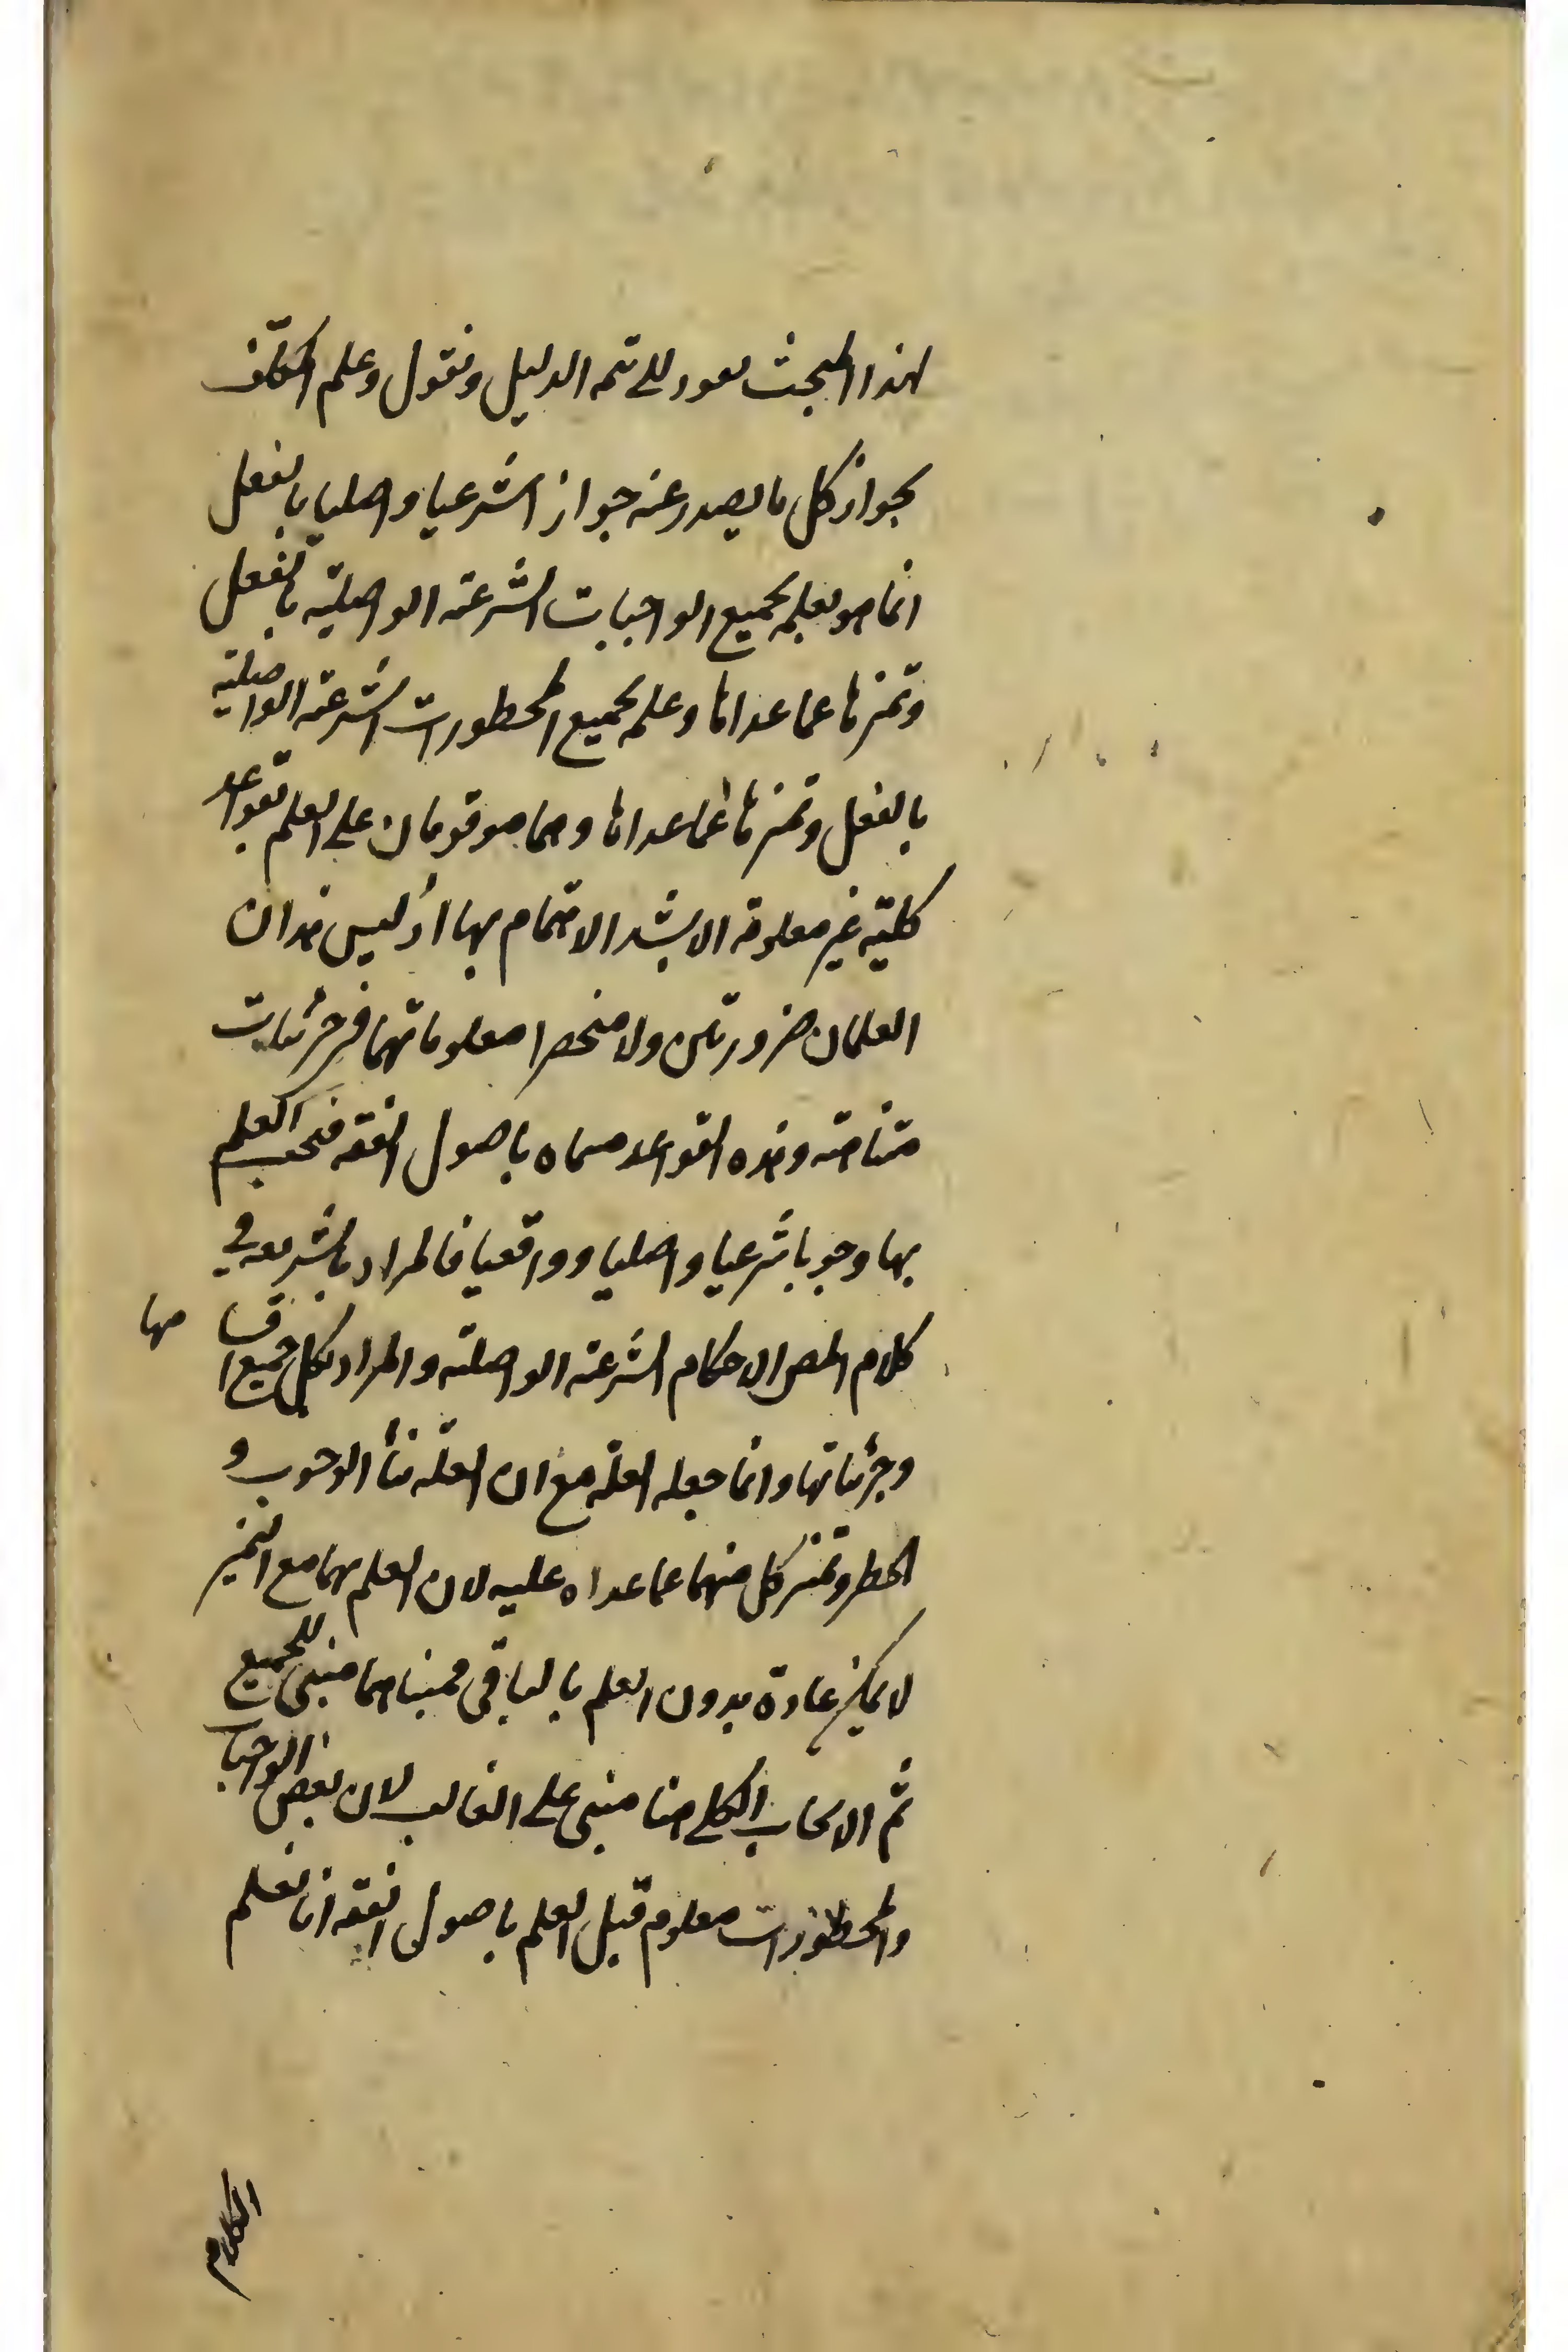 لهذا المبحث نعود الى تتمه الدليل ونقول وعلم المكلف
بجواز كل ما يصدر عنه جوازا شرعيا واصليا بالفعل
انما هو بعلمه بجميع الواجبات الشرعية الواصلية بالفعل
وتميزها عما عداها وعلمه بجميع المحظورات الشرعية الواصلية
بالفعل وتميزها عما عداها وهما موقوفان على العلم بقواعد
كلية غير معلومة الا بشد الاهتمام بها اذ ليس هذان
العلمان ضروريين ولا منحصرا معلوماتهما في جزئيات
متناهية وهذه القواعد مسماه باصول الفقه فيجب العلم
بها وجوبا شرعيا واصليا وواقعيا فالمراد بالشريعه في
كلام المص الاحكام الشرعية الواصلية والمراد بكل جميع اقسامها
وجزئياتها وانما جعله العلة مع ان العلة هنا الوجوب و
الحظر وتميز كل منهما عما عداه عليه لان العلم بهما مع التميز
لا يمكن عادة بدون العلم بالباقي فمبناهما مبنى للجميع
ثم الايجاب الكلي هنا مبني على الغالب لان بعض الواجبات
والمحظورات معلوم قبل العلم باصول الفقه انا نعلم
الكلام